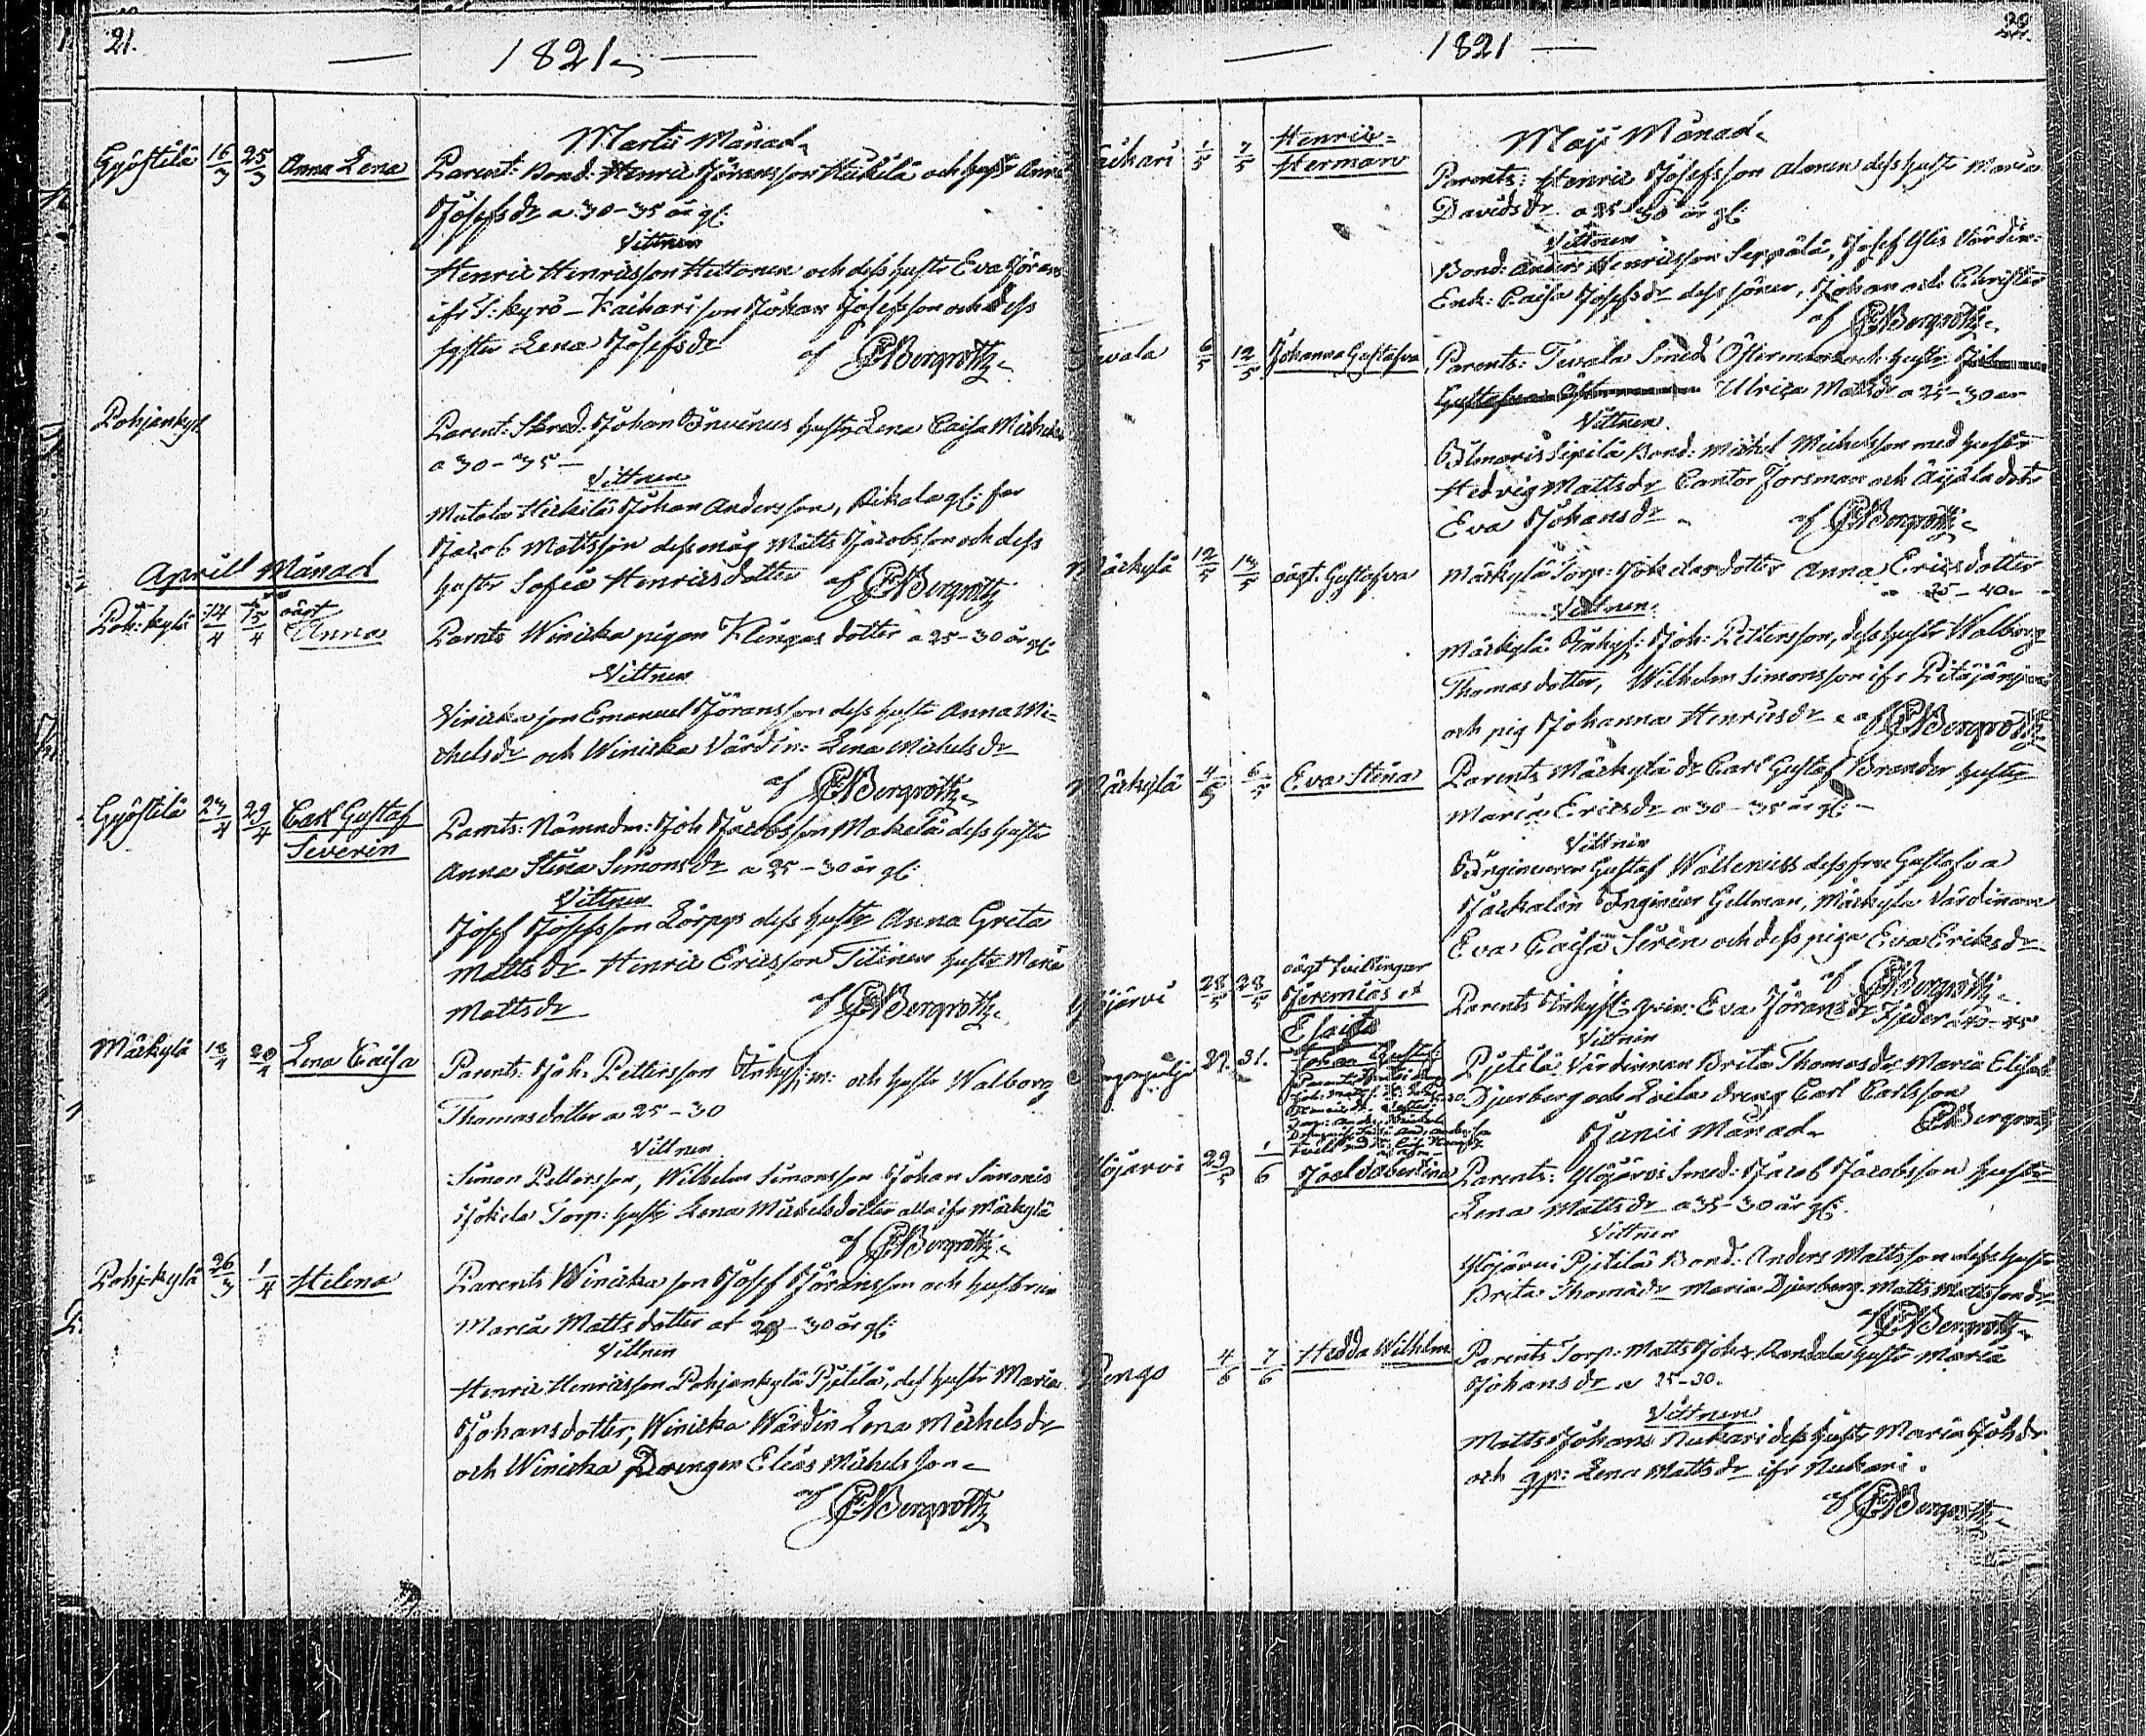 21.
1821
Martii Månad
Gyöstilä 16/3 25/3 Anna Lena
Parent: Bond: Henric Jöransson Heikilä och hust Anna
Josefsdr a 30-35 år gl:
Vittnen
Henric Henricsson Hettonen och dess hustr Eva Jörans
ifr T: kyrö - Kaihari son Johan Josefsson och dess
syster Lena Josefsdr af Bergroth
Pohjankyl
Parent: Skred: Johan hustr Lena Caisa Michels
a 30-35-
Vittnen
Matala Heikilä Johan Andersson, gl: far
Jacob Mattsson dess måg Matts Jacobsson och dess
hustr Sofia Henricsdotter af Bergroth
Aprill Månad
Poh: kylä 14/4 15/4 oägt Anna
Parnts Winicka pigan Klingas dotter a 25-30 år gl:
Vittnen
Vinicka son Emanuel Jöransson dess hustr Anna Mi-
chelsdr och Winicka Värdin: Lena Michelsdr
af Bergroth
Gyöstilä 23/4 29/4 Carl Gustaf
Severin
Parnts: Nämndm: Joh Jacobsson Makelä dess hustr
Anna Stina Simonsdr a 25-30 år gl:
Vittnen
Josef Josefsson Lörpys dess hustr Anna Greta
Mattsdr Henric Ericsson hustr Maria
Mattsdr af Bergroth
Mäckylä 18/4 20/4 Lena Caisa
Parents: Joh. Pettersson Inhys: m: och hustr Walborg
Thomasdotter a 25-30
Vittnen
Simon Pettersson, Wilhelm Simonsson Johan Simons
Jokela Torp: hustr Lena Michelsdotter alla ifr Mäckylä
af Bergroth
Pohj-kylä 26/3 1/4 Helena
Parents Winicka son Josef Jöransson och hustrun
Maria Mattsdotter at 29-30 år gl:
Vittnen
Henric Henricsson Pohjankylä Pjetilä, dess hustr Maria
Johansdotter, Winicka Wärdin Lena Michelsdr
och Winicka Drengen Elias Michelsson
af Bergroth
22.
1821
Maji Månad
1/5 7/5 Henric-
Herman
Parents: Henric Josefsson Alonen dess hustr Maria
Davidsdr a 25-30 år gl:
Vittnen
Bond: Anders Henricsson Seppälä, Josef Ylis Värdin:
Enk: Caisa Josefsdr dess söner, Johan och Christer
af Bergroth
6/5 12/5 Johanna Gustafva
Parents: Tevala Smed Österman och hustr
Ulrica Mattsdr a 25-30 år
Vittnen
Sipilä Bond: Michel Michelsson med hustr
Hedvig Mattsdr Cantor Forsman och Äijälä dotr
Eva Johansdr af Bergroth
Mäckylä 12/5 13/5 oägt. Gustafva
Mäckylä Torp: Jokelas dotter Anna Ericsdotter
35-40
Vittnen
Mäckylä Inhys: Joh: Pettersson, dess hustr Walborg
Thomasdotter, Wilhelm Simonsson ifr
och pig Johanna Henricsdr af Bergroth
Mäckylä 4/5 6/5 Eva Stina
Parents Mäckylä dr Carl Gustaf Brander hustr
Maria Ericsdr a 30-35 år gl:
Vittnen
Ingineuren Gustaf Wallenius dess fru Gustafva
Ingineur Gellman, Mäckylä Värdinnan
Eva Caisa Siren och dess piga Eva Eriksdr
af Bergroth
28/5 28/5 oägt tvillingar
Jeremias et
Esaias
Parents Inhyst: qvin: Eva Jöransdr 40-45
Vittnen
Pjetilä Värdinnan Brita Thomasdr Maria Elisab
Djurberg och Loila dreng Carl Carlsson
Bergroth
27. 31. Johan Gustaf
Junii Månad
29/5 1/6
Parents: Ylöjärvi Smed: Jacob Jacobsson hustr
Lena Mattsdr a 35-30 år gl:
Vittnen
Ylöjärvi Pjetilä Bond: Anders Mattsson dess hustr
Brita Thomadr Maria Djurberg. Matts Mattsson dr
af Bergroth
4/6 7/6 Hedda Wilhelm
Parents Torp: Matts Johs hustr Maria
Johansdr a 25-30.
Vittnen
Matts Johans Nukari dess hustr Maria Johdr
och gp: Lena Mattsdr ifr Nukari.
af Bergroth